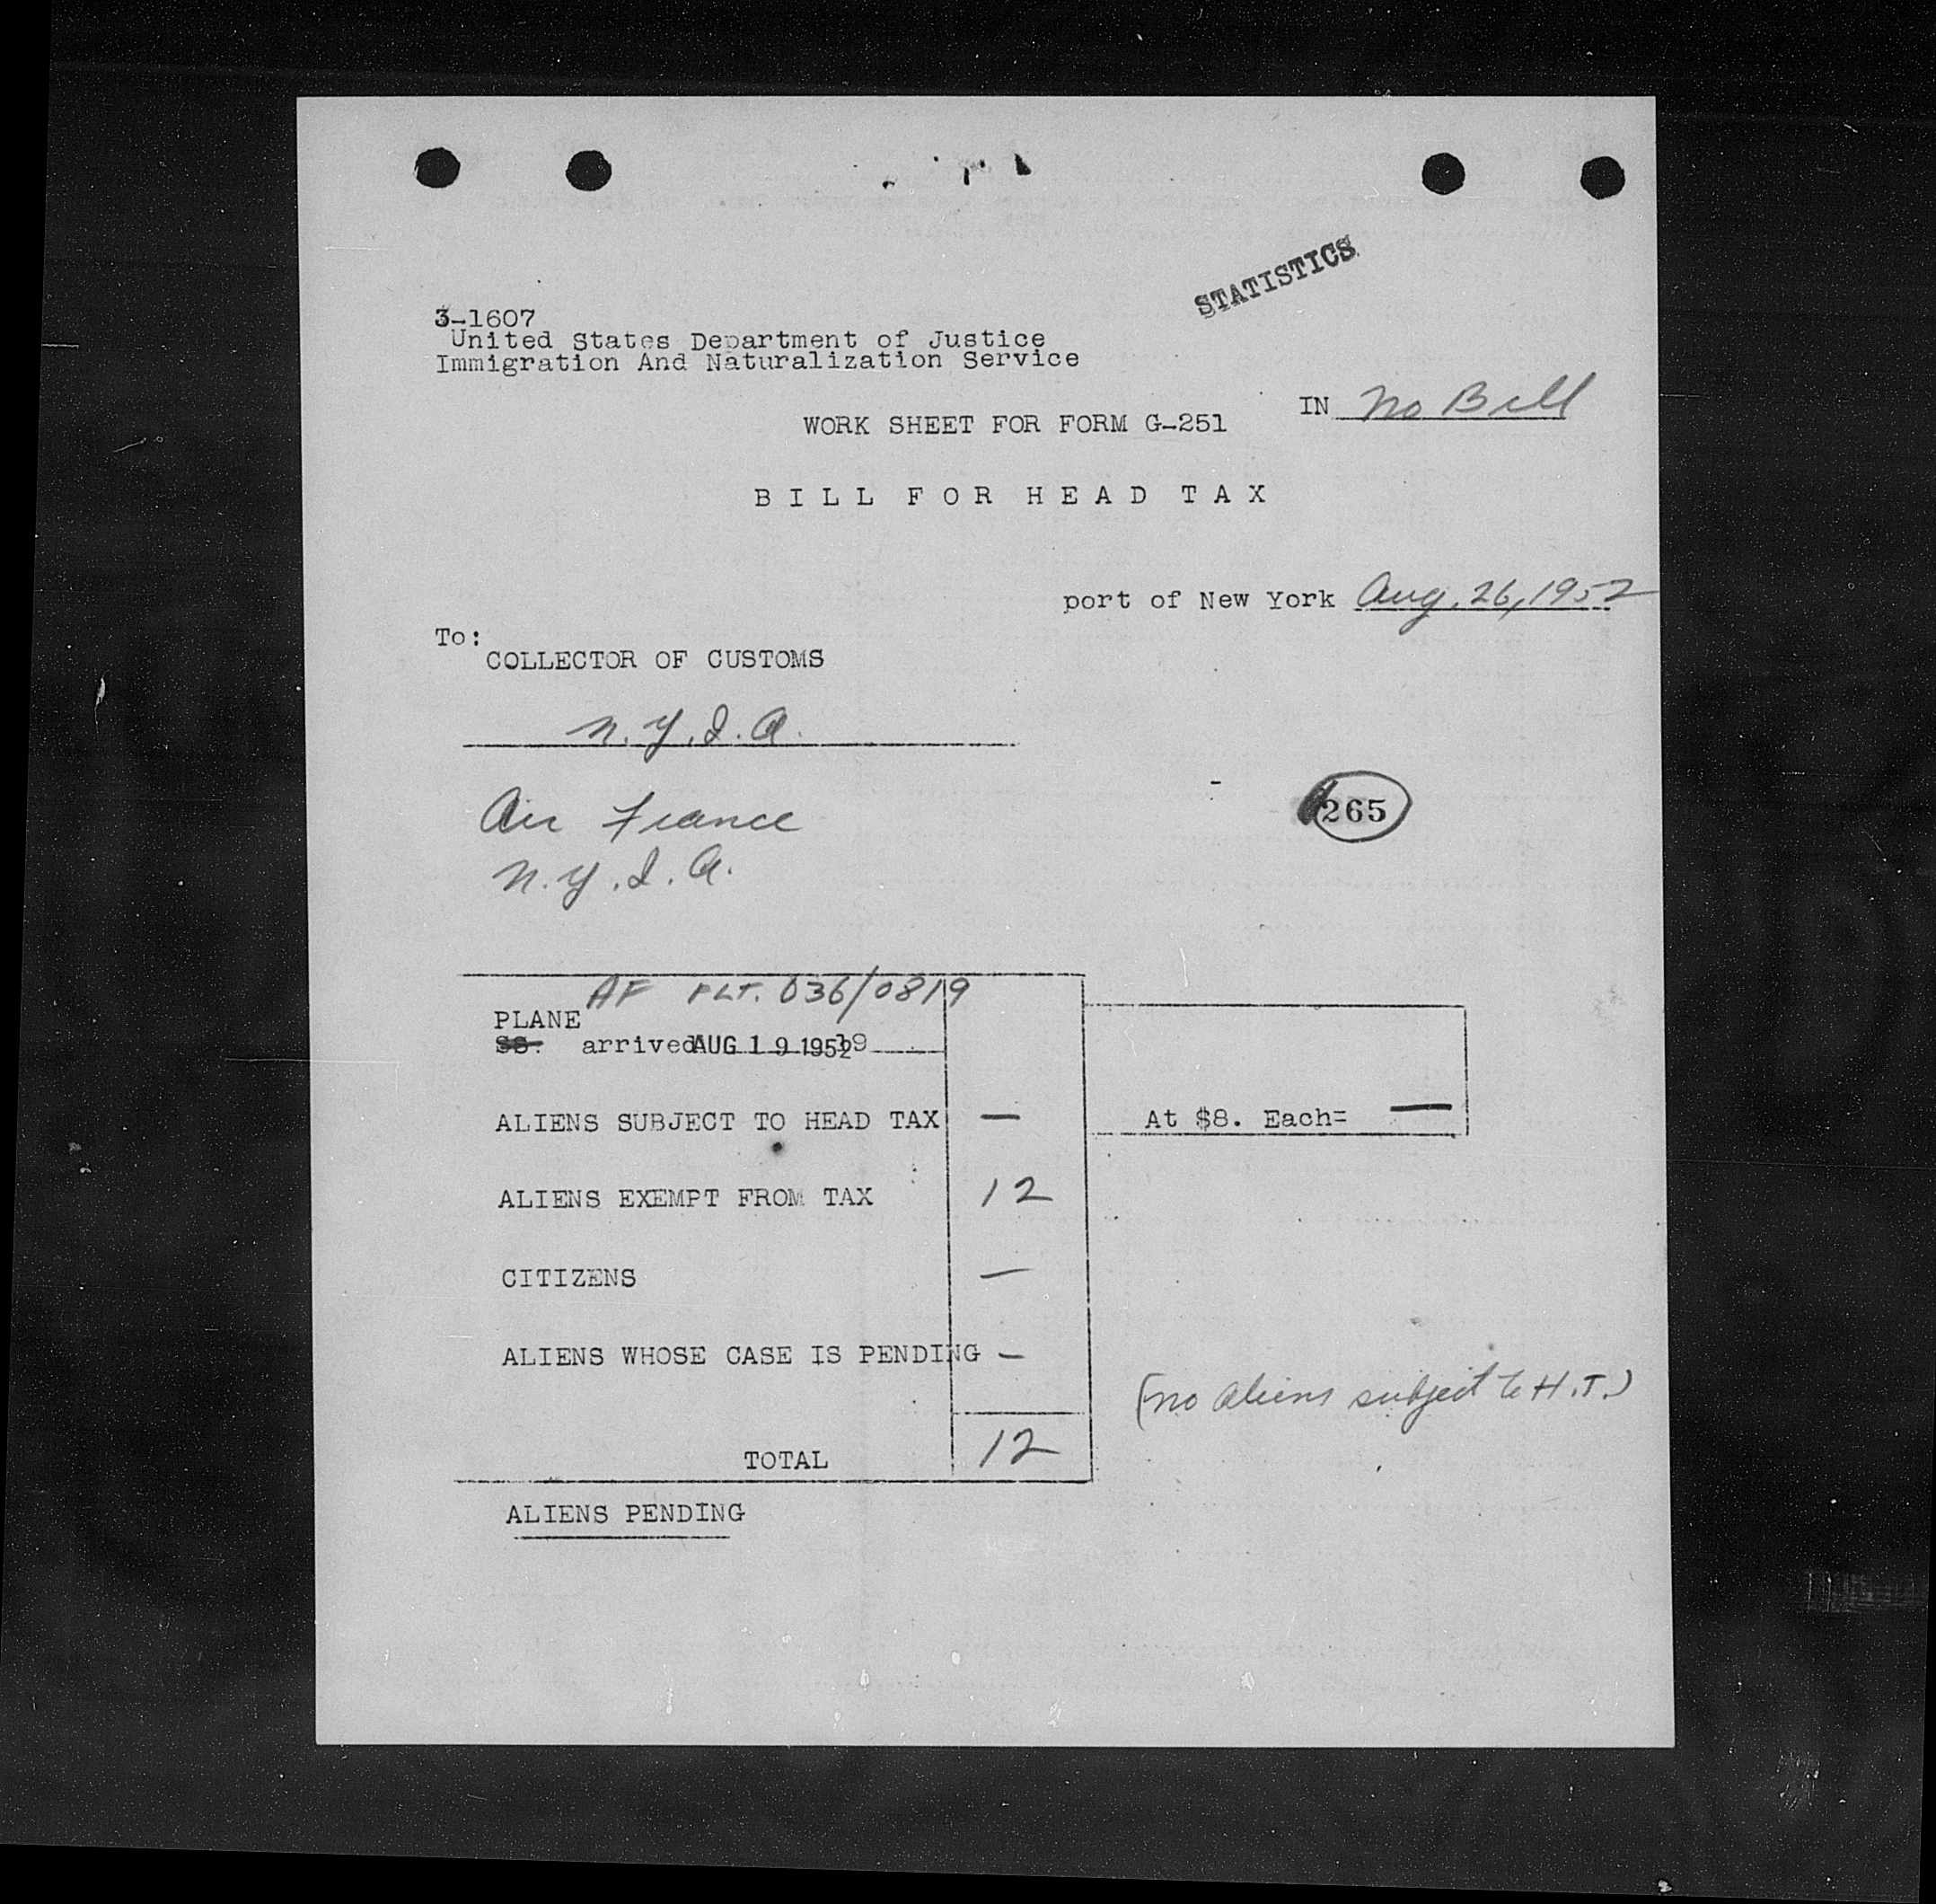 STATISTICS
3-1607
United States Department of Justice
Immigration And Naturalization Service
IN No Bill
WORK SHEET FOR FORM G-251
BILL FOR HEAD TAX
port of New York Aug. 26, 1952
To:
COLLECTOR OF CUSTOMS
N.Y.I.A.
Air France
N.Y.I.A.
265
AF FLT. 036/0819
PLANE
SS. arrived AUG 19 1952 19
ALIENS SUBJECT TO HEAD TAX —
At $8. Each= —
ALIENS EXEMPT FROM TAX 12
CITIZENS —
ALIENS WHOSE CASE IS PENDING —
(no aliens subject to H.T.)
TOTAL 12
ALIENS PENDING